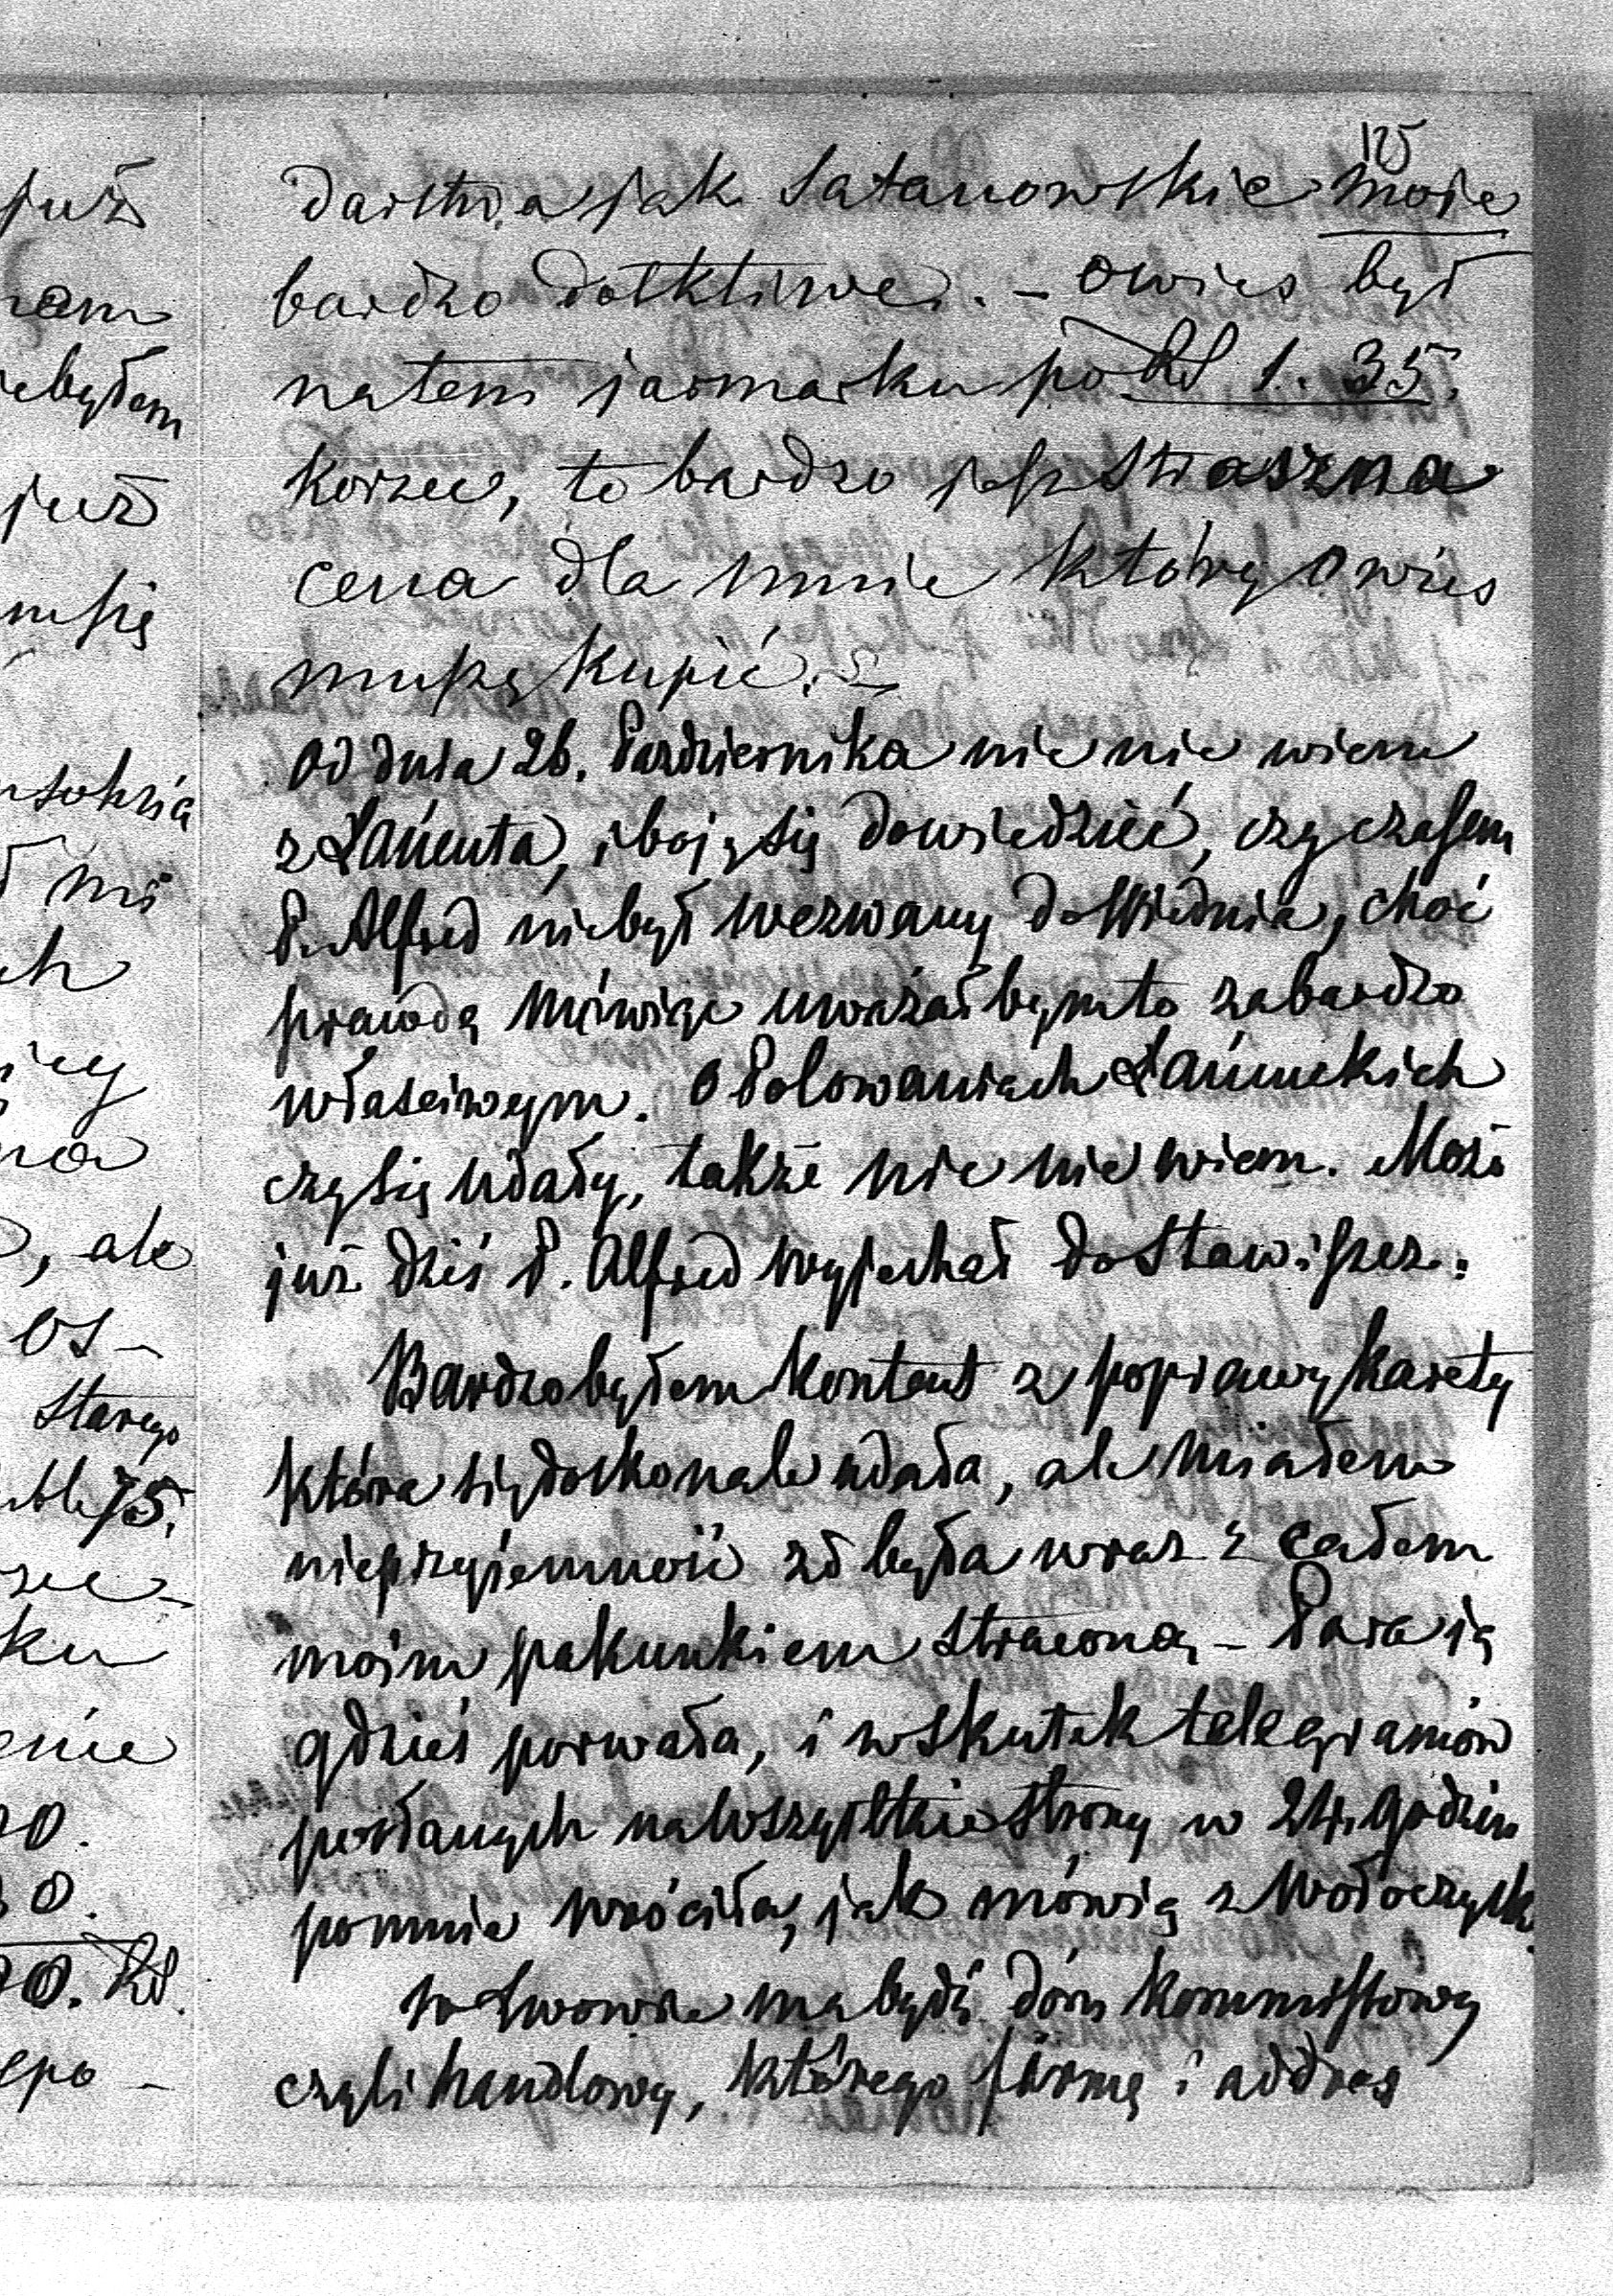 125
darstwa jak Satanowskie moje
bardzo dotkliwe. – Owies był
na tem jarmarku po RS 1. 35.
korzec, to bardzo jest straszna
cena dla mnie który owies
muszę kupić. –
Od dnia 26. Października nic nie wiem
z Łańcuta, i boję się dowiedzieć, czy czasem
P. Alfred nie był wezwany do Wiednia, choć
prawdę mówiąc uważałbym to za bardzo
właściwym. O Polowaniach Łańcuckich
czy się udały, także nic nie wiem. Może
już dziś P. Alfred wyjechał do Stawiszcz.
Bardzo byłem kontent z poprawy karety
która się doskonale udała, ale miałem
nieprzyjemność że była wraz z całem
moim pakunkiem straconą – Para ją
gdzieś porwała, i w skutek telegramów
posłanych na wszystkie strony w 24. godzin
po mnie wróciła, jak mówią z Wołoczysk.
we Lwowie ma bydź dóm kommissowy
czyli handlowy, którego firmę i addres
już
ebyłem
już
mi
ale
Starego
75.
ku